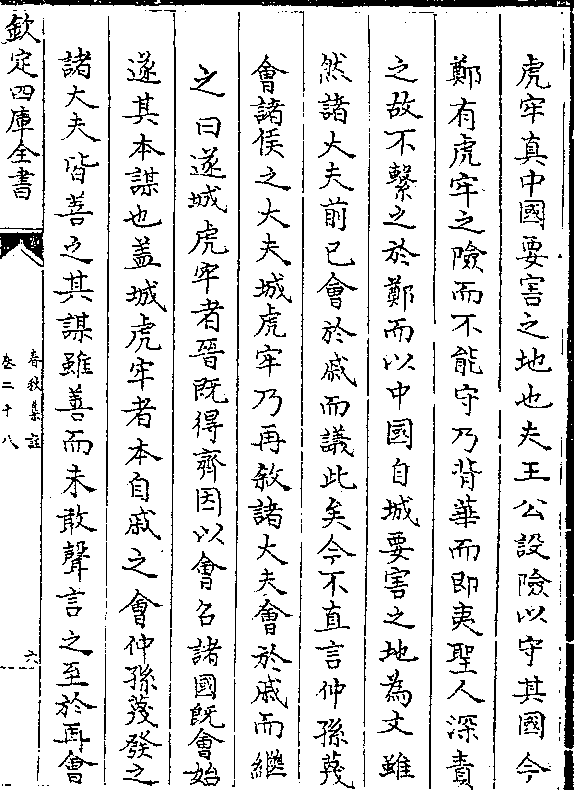 虎牢真中國要害之地也夫王公設險以守其國今
鄭有虎牢之險而不能守乃背華而即夷聖人深責
之故不繫之於鄭而以中國自城要害之地為文雖
然諸大夫前已會於戚而議此矣今不直言仲孫蔑
會諸侯之大夫城虎牢乃再敘諸大夫會於戚而繼
之曰遂城虎牢者晉既得齊因以會召諸國既會始
遂其本謀也盖城虎牢者本自戚之會仲孫蔑發之
諸大夫皆善之其謀雖善而未敢聲言之至於再會
欽定四庫全書
春秋集註
卷二十八
六